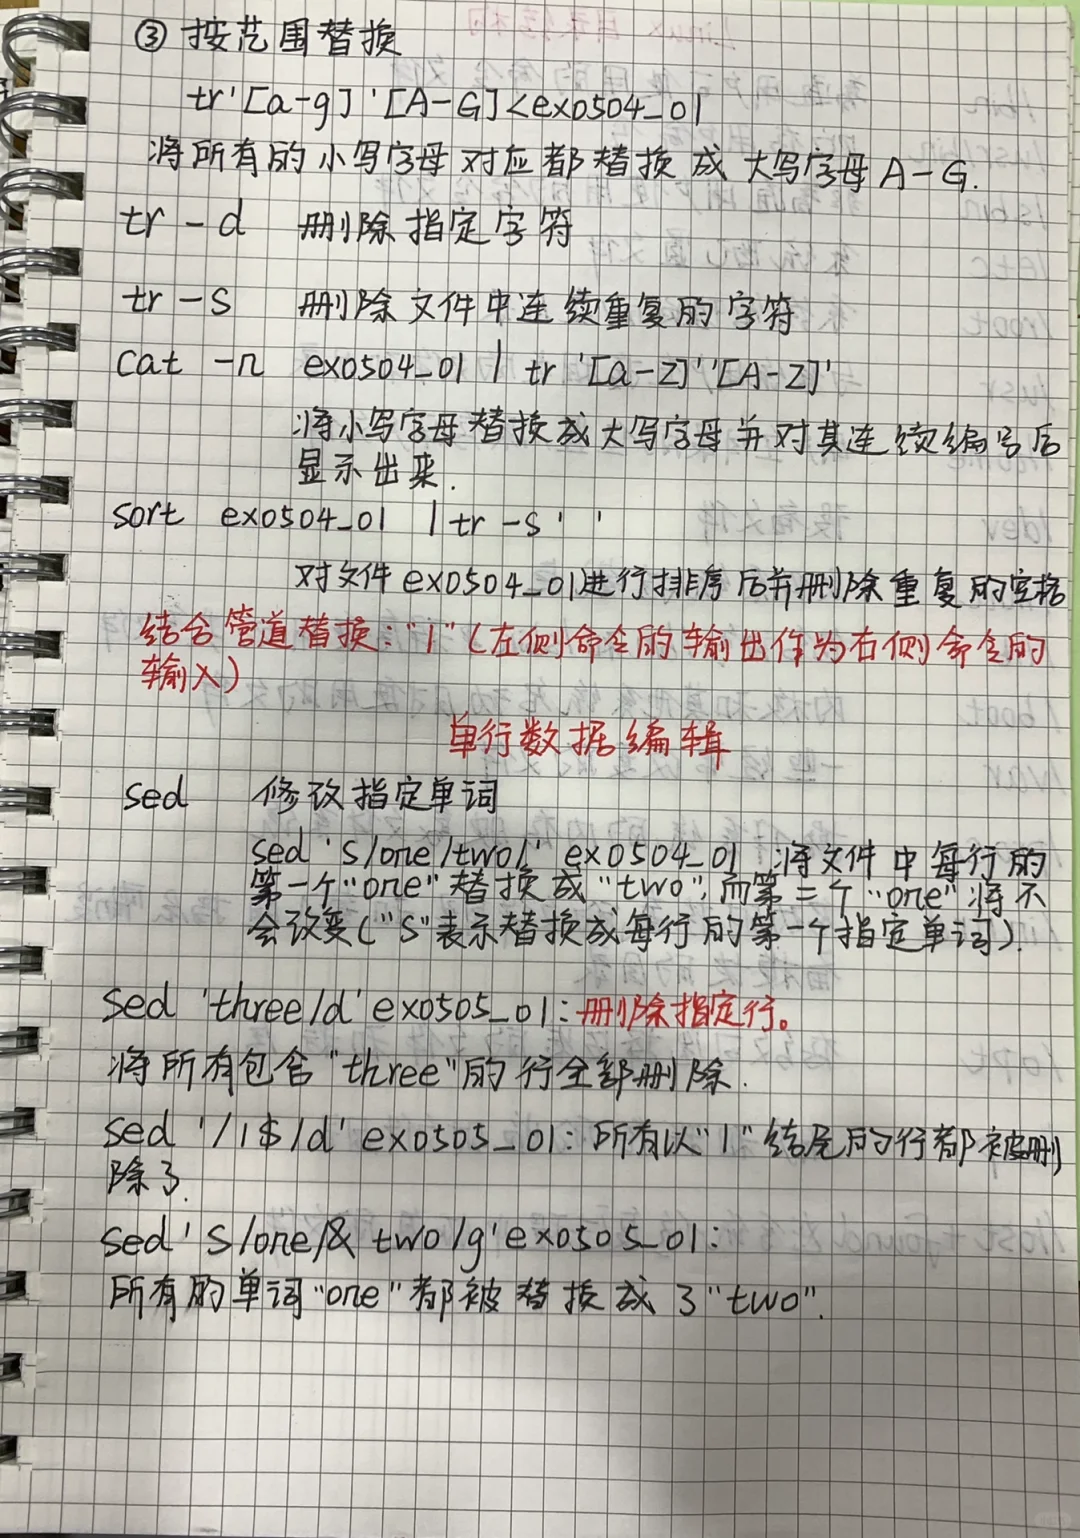 ③ 按范围替换
tr '[a-g]' '[A-G] <ex0504_01
将所有的小写字母对应都替换成大写字母A-G.
tr -d 删除指定字符
tr -s 删除文件中连续重复的字符
cat -n ex0504_01 | tr '[a-z]' '[A-Z]'
将小写字母替换成大写字母并对其连续编号后
显示出来.
sort ex0504_01 | tr -s ' '
对文件ex0504_01进行排序后并删除重复的空格
结合管道替换:"|"(左侧命令的输出作为右侧命令的
输入)
单行数据编辑
sed 修改指定单词
sed 's/one/two/' ex0504_01 将文件中每行的
第一个"one"替换成"two",而第二个"one"将不
会改变("S"表示替换成每行的第一个指定单词).
sed 'three/d' ex0505_01:删除指定行。
将所有包含"three"的行全部删除.
sed '/1$/d' ex0505_01:所有以"1"结尾的行都被删
除了.
sed 's/one/& two/g' ex0505_01:
所有的单词"one"都被替换成了"two".